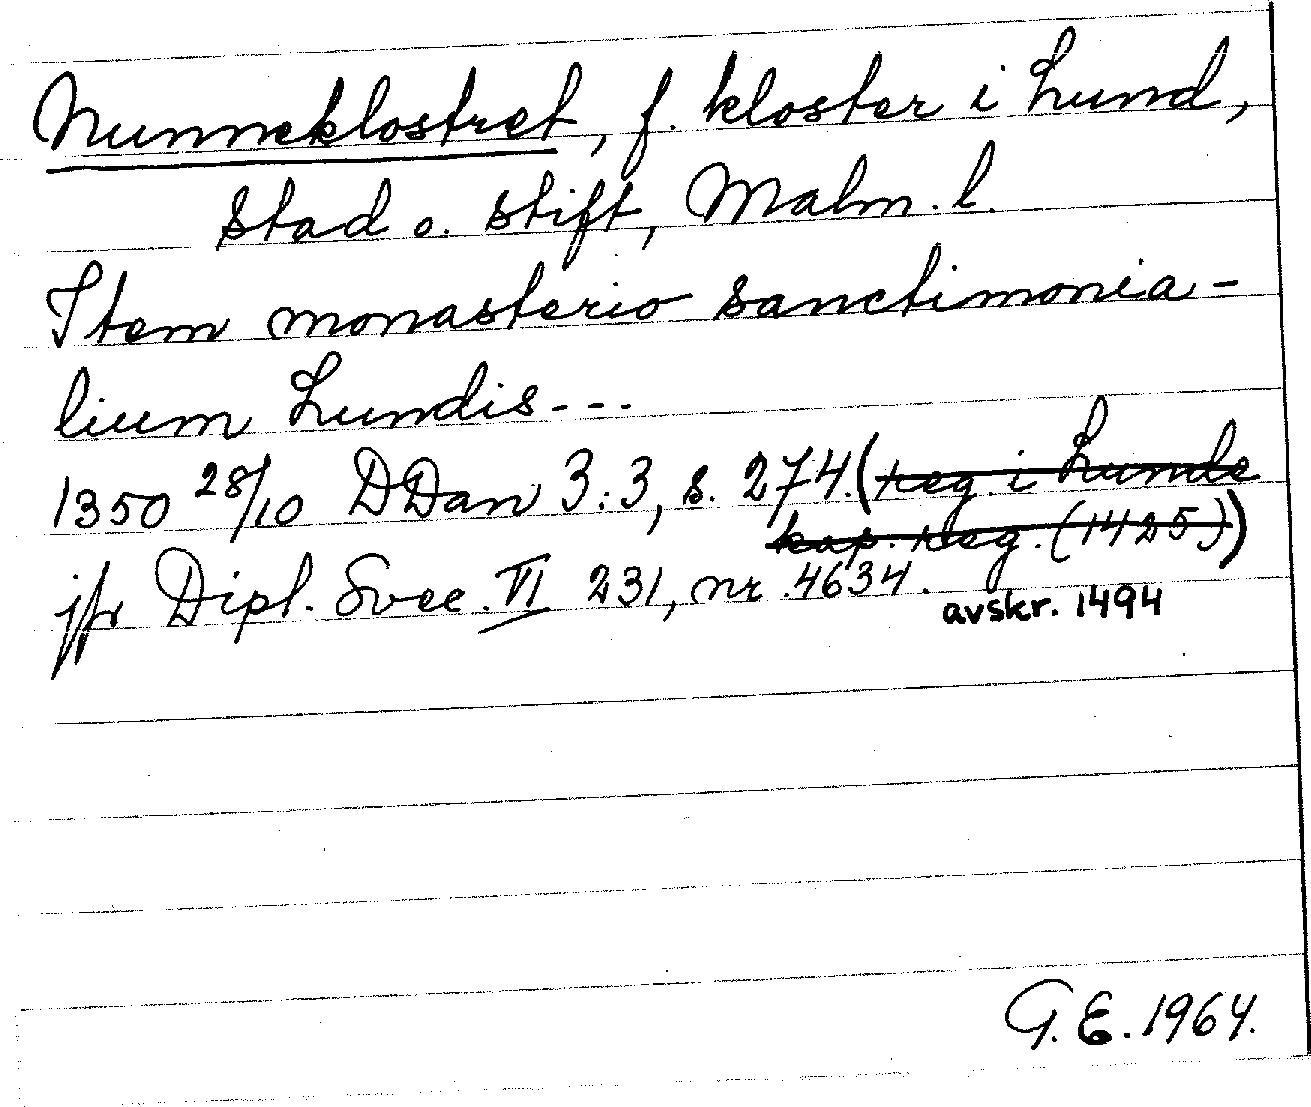 Nunneklostret, f. kloster i Lund,
stad o. stift, Malm. l.
Item monasterio sanctimonia-
lium Lundis---
1350 28/10 DDan 3:3, s. 274. (reg. i Lunde
kap. reg. (1425))
jfr Dipl. Svec. VI 231, nr 4634.
avskr. 1494
G. E. 1964.